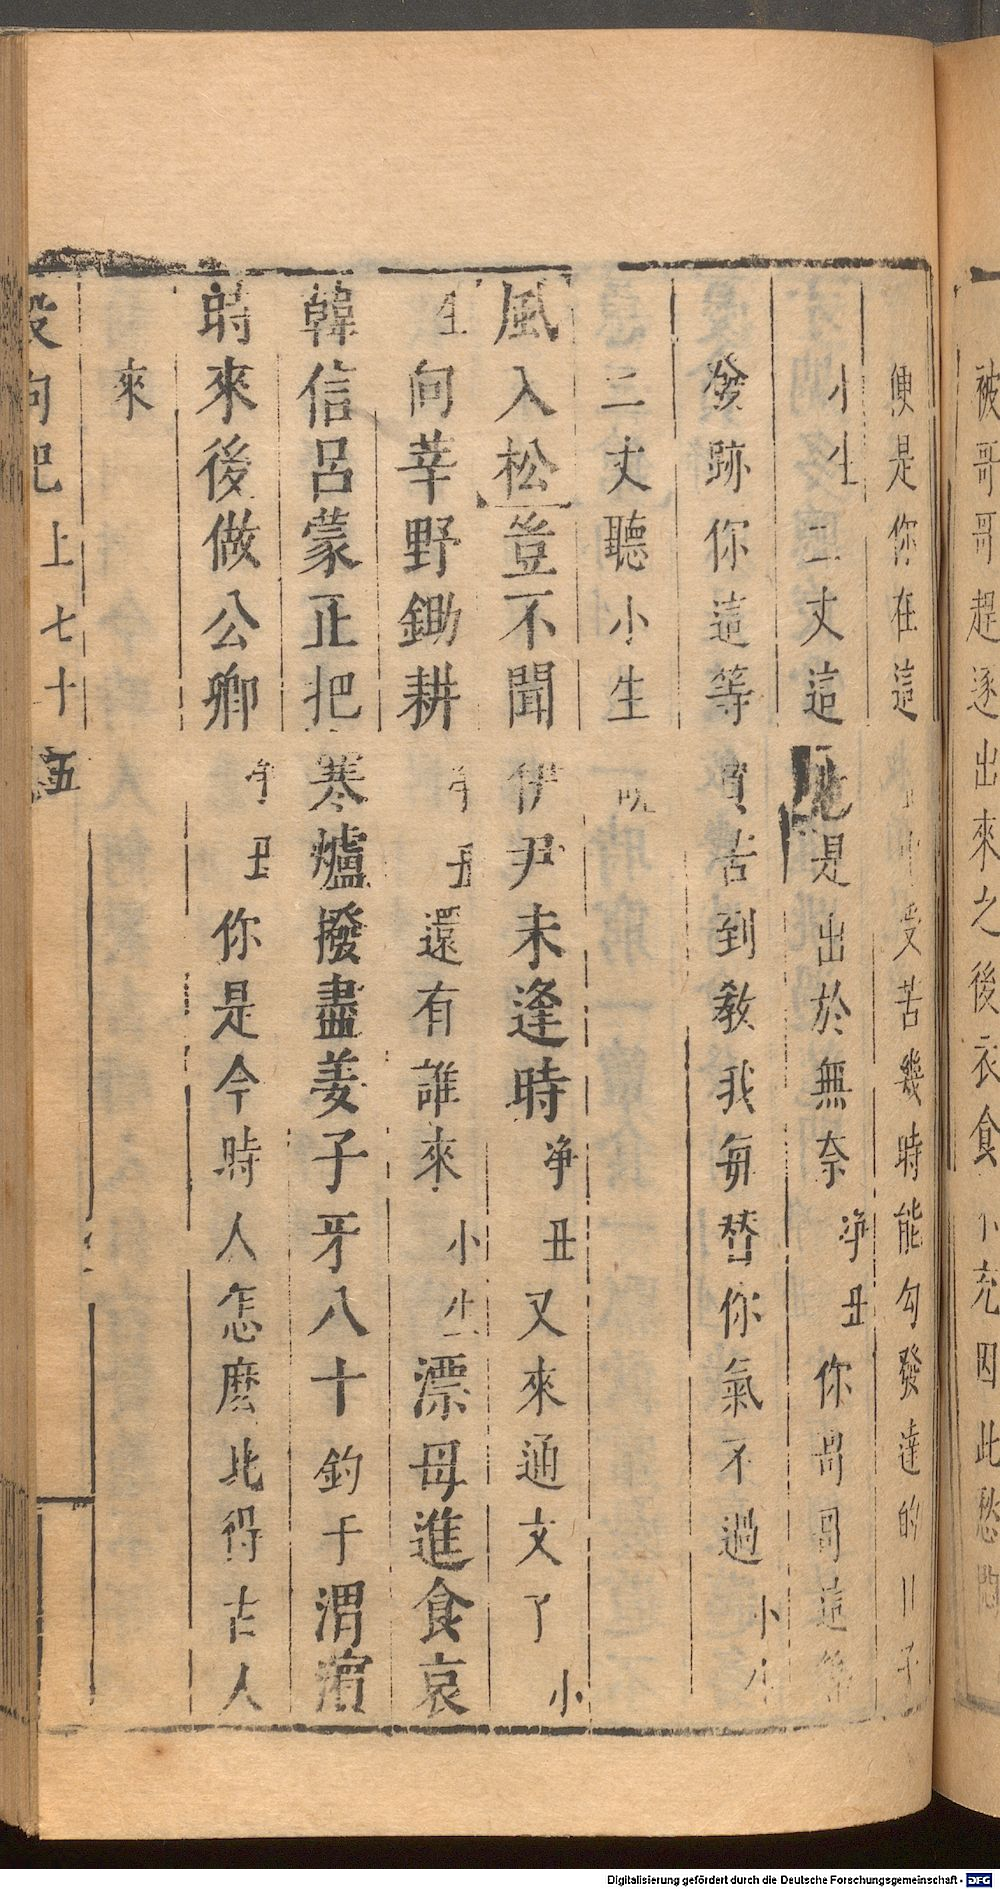 被哥哥趕逐出來之後衣食不充因此愁悶
便是你在這 中受苦幾時能勾發達的日子
小生 二丈這 是出於無奈 淨丑 你哥哥這等
發跡你這等 貧苦到教我每替你氣不過 小生
二丈聽小生
風入松 豈不聞伊尹未逢時 淨丑 又來通文了 小
生 向莘野鋤耕 淨丑 還有誰來 小生 漂母進食哀
韓信呂蒙正把寒爐撥盡姜子牙八十釣于渭濱
時來後做公卿 淨丑 你是今時人怎麼比得古人
來
殺狗記 上 七十五
Digitalisierung gefördert durch die Deutsche Forschungsgemeinschaft - DFG